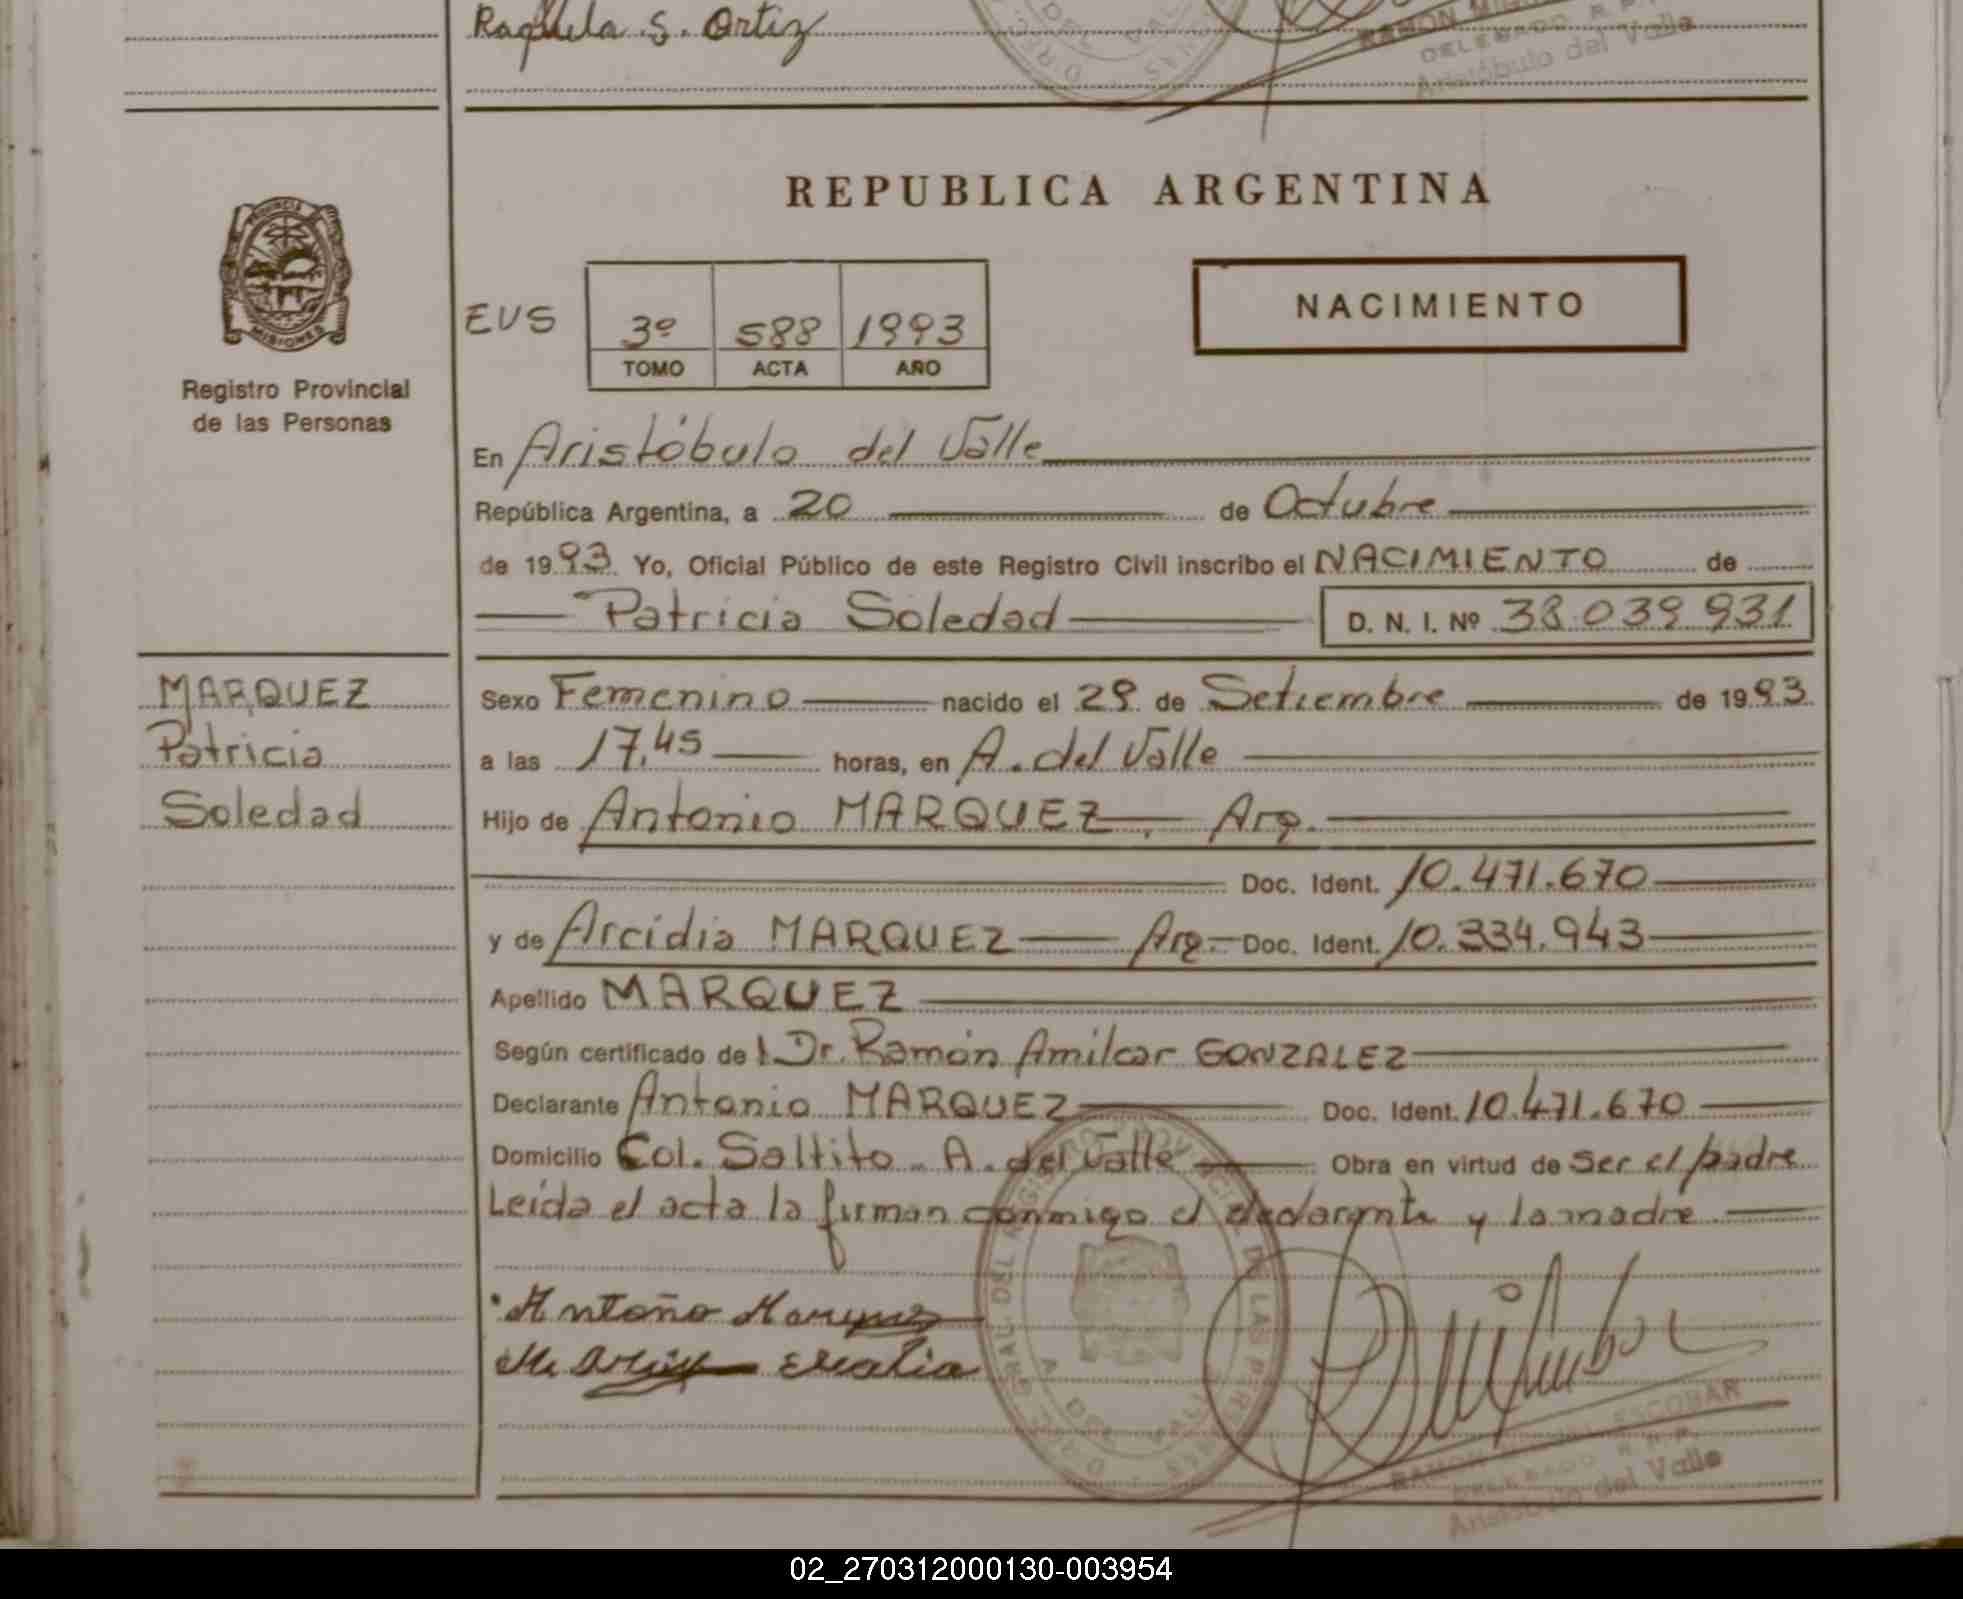 Raquela S. Ortiz
DELEGADO R.P.
Aristóbulo del Valle
REPUBLICA ARGENTINA
PROVINCIA
MISIONES
Registro Provincial
de las Personas
EVS
3º 588 1993
TOMO ACTA AÑO
NACIMIENTO
En Aristóbulo del Valle
República Argentina, a 20 de Octubre
de 1993 Yo, Oficial Público de este Registro Civil inscribo el NACIMIENTO de
Patricia Soledad D. N. I. Nº 38.039.931
MARQUEZ
Patricia
Soledad
Sexo Femenino nacido el 29 de Setiembre de 1993
a las 17,45 horas, en A. del Valle
Hijo de Antonio MARQUEZ Arg.
Doc. Ident. 10.471.670
y de Arcidia MARQUEZ Arg. Doc. Ident. 10.334.943
Apellido MARQUEZ
Según certificado de Dr. Ramón Amilcar GONZALEZ
Declarante Antonio MARQUEZ Doc. Ident. 10.471.670
Domicilio Col. Saltito - A. del Valle Obra en virtud de ser el padre
Leída el acta la firman conmigo el declarante y la madre
Antoño Marquez
RAMON MIGUEL ESCOBAR
DELEGADO R.P.P.
Aristóbulo del Valle
02_270312000130-003954